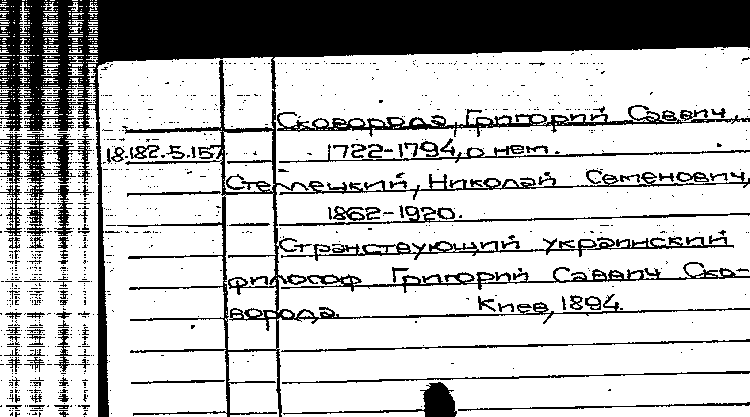 Сковорода, Григорий Саввич,
18.182.5.157 1722-1794, о нем.
Стеллецкий, Николай Семенович,
1862-1920.
Странствующий украинский
философ Григорий Саввич Ско-
ворода. Киев, 1894.